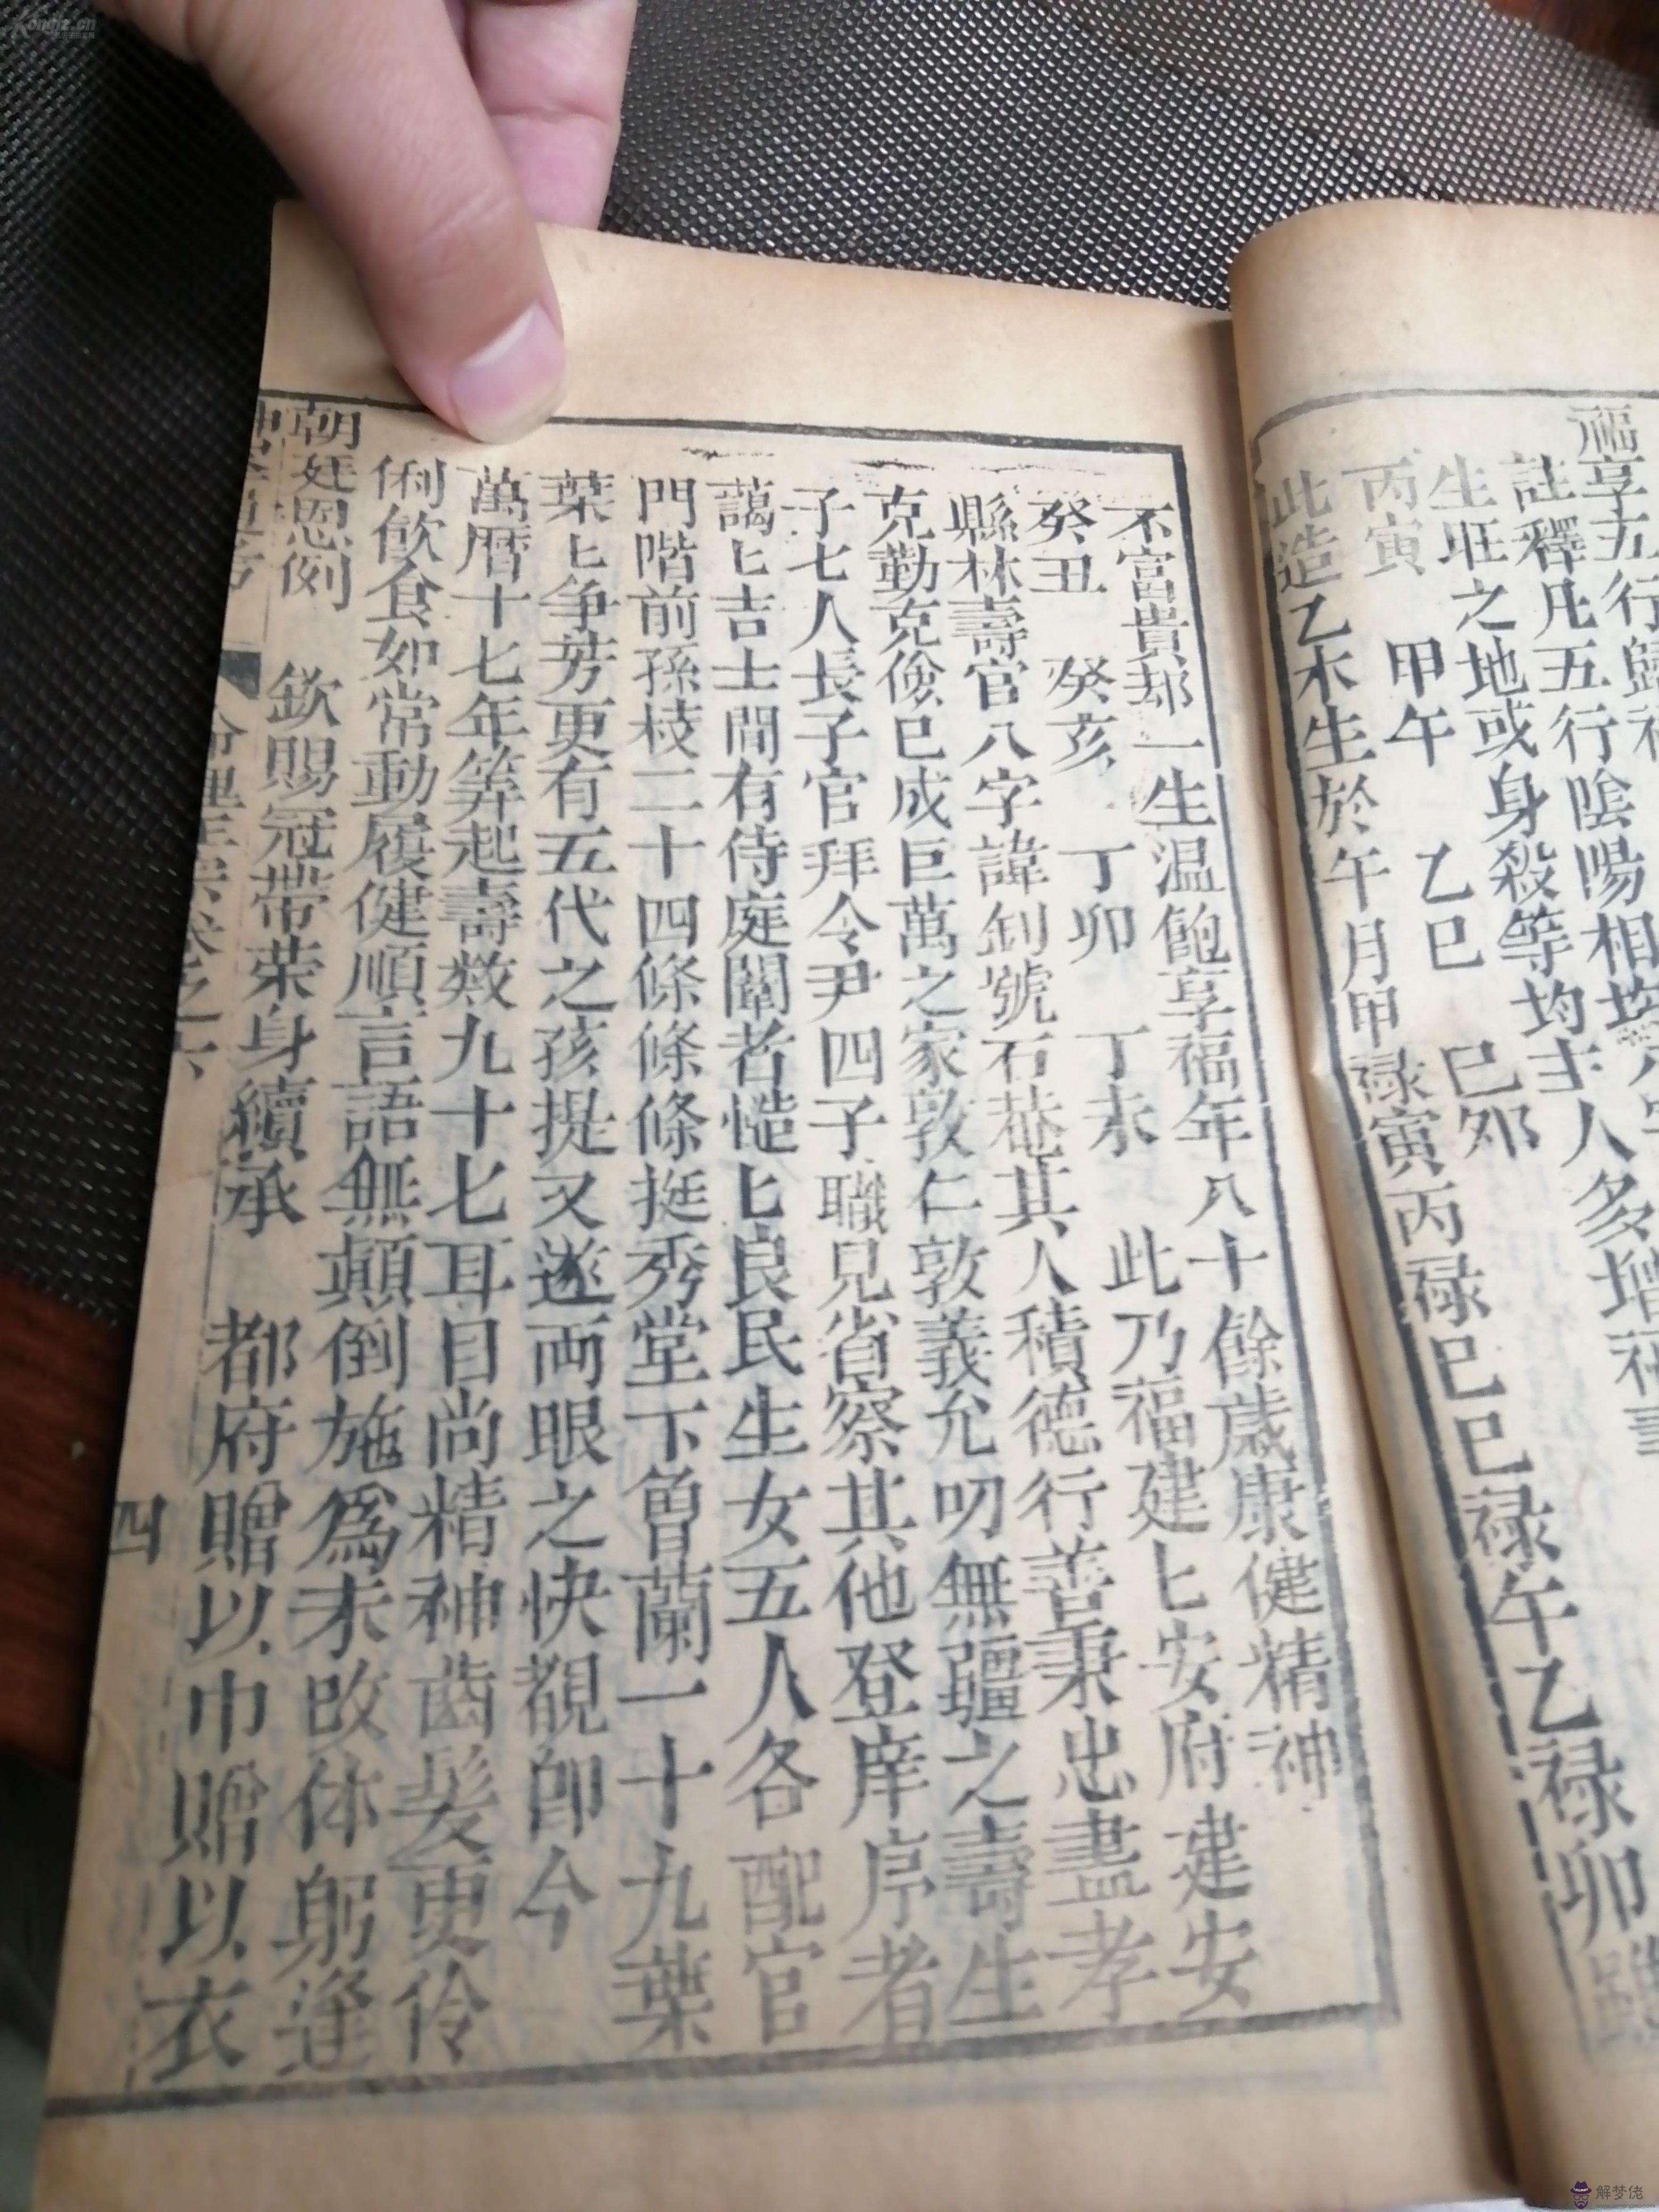 福享五行歸
註釋凡五行陰陽相均
生旺之地或身殺等均主人多增福壽
丙寅 甲午 乙巳 己卯
此造乙木生於午月甲禄寅丙禄巳己禄午乙禄卯雖
不富貴却一生温飽享福年八十餘歲康健精神
癸丑 癸亥 丁卯 丁未 此乃福建匕安府建安
縣林壽官八字諱釗號石菴其人積德行善秉忠盡孝
克勤克儉已成巨萬之家敦仁敦義允叨無疆之壽生
子七人長子官拜令尹四子職見省察其他登庠序者
藹匕吉士間有侍庭闈者慥匕良民生女五人各配官
門階前孫枝二十四條條條挺秀堂下曾蘭一十九葉
葉匕爭芳更有五代之孩提又遂兩眼之快覩即今
萬曆十七年筭起壽數九十七耳目尚精神齒髮更伶
俐飲食如常動履健順言語無顛倒施爲未改体躬逢
朝廷恩例 欽賜冠帶荣身續承 都府贈以巾贈以衣
命理正宗卷之六 四
解梦佬